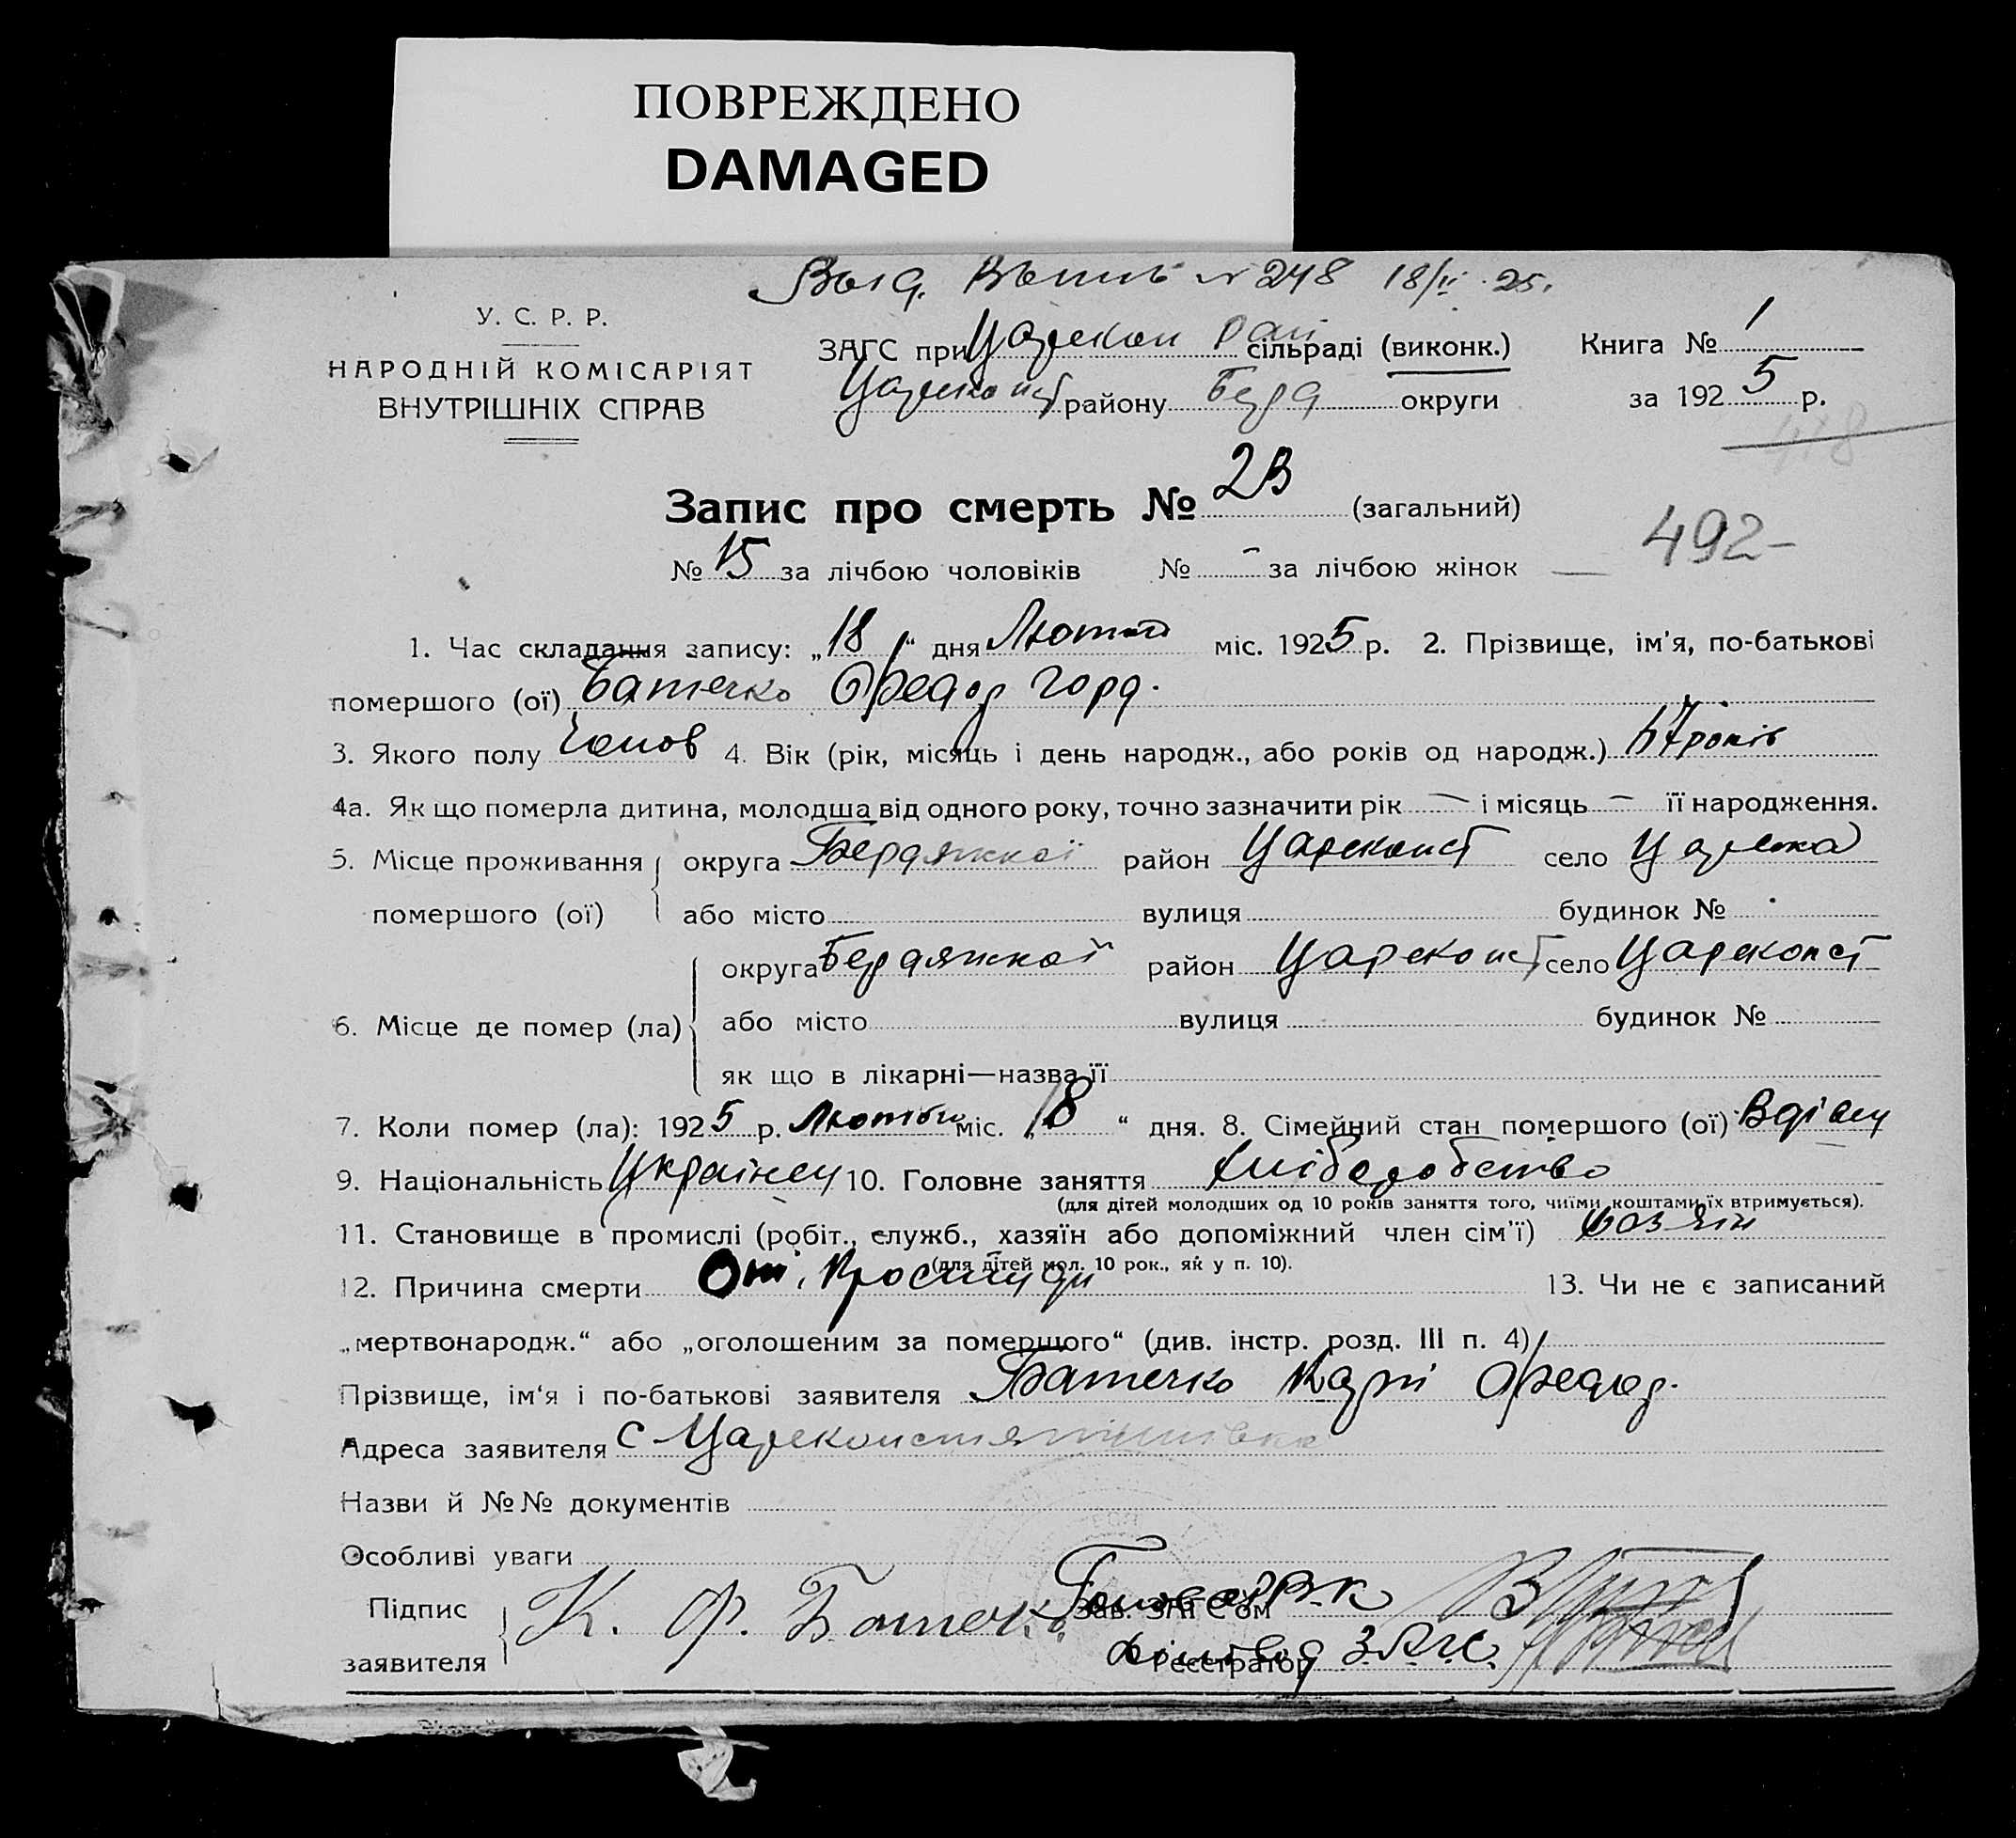 ПОВРЕЖДЕНО
DAMAGED
Выд. № 248 18/II 25.
У. С. Р. Р.
НАРОДНІЙ КОМІСАРІЯТ
ВНУТРІШНІХ СПРАВ
ЗАГС при Царекон Рай сільраді (виконк.)
Цареконст району Берд округи
Книга № 1
за 1925 р.
418
Запис про смерть № 23 (загальний)
492-
№ 15 за лічбою чоловіків № - за лічбою жінок
1. Час складання запису: „18“ дня Лютого міс. 1925 р. 2. Прізвище, ім'я, по-батькові
помершого (ої) Батечко Федор Горд.
3. Якого полу Чолов 4. Вік (рік, місяць і день народж., або років од народж.) років
4а. Як що померла дитина, молодша від одного року, точно зазначити рік — і місяць — її народження.
5. Місце проживання помершого (ої) округа Бердянської район Цареконст село
або місто вулиця будинок №
6. Місце де помер (ла) округа Бердянської район Цареконст село Цареконст
або місто вулиця будинок №
як що в лікарні—назва її
7. Коли помер (ла): 1925 р. Лютого міс. „18“ дня. 8. Сімейний стан помершого (ої) Вдівец
9. Національність Українец 10. Головне заняття Хліборобство
(для дітей молодших од 10 років заняття того, чиїми коштами їх втримується).
11. Становище в промислі (робіт., служб., хазяїн або допоміжний член сім'ї) Хозяін
(для дітей мол. 10 рок., як у п. 10).
12. Причина смерти От Простуди 13. Чи не є записаний
„мертвонародж.“ або „оголошеним за помершого“ (див. інстр. розд. III п. 4)
Прізвище, ім'я і по-батькові заявителя Батечко Карпі Федор.
Адреса заявителя С Цареконстянтинівка
Назви й №№ документів
Особливі уваги
Підпис заявителя К. Ф. Батечко
Голова РВК
Зав. ЗАГС'ом
ЗАГС
Реєстратор